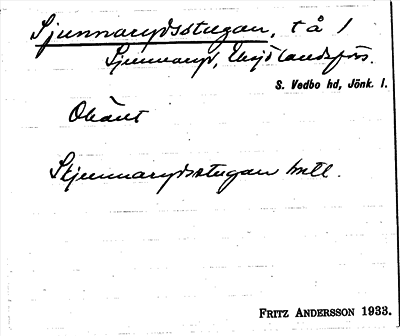 Sjunnarydsstugan, t å 1
Sjunnaryd, Eksjö landsförs.
S. Vedbo hd, Jönk. l.
Okänt
Skjunnarydsstugan
FRITZ ANDERSSON 1933.